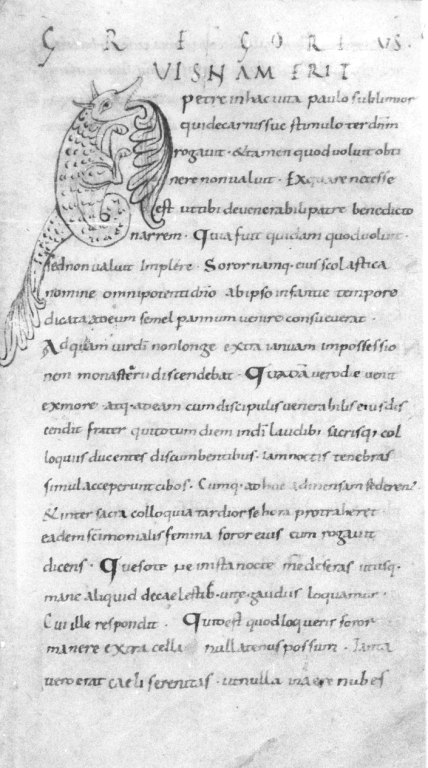 GREGORIUS.
UISNAM ERIT
petre inhac uita paulo sublimior
quidecarnis sue stimulo ter dnm
rogauit · & tamen quod uoluit obti
nere non ualuit · Ex quare necesse
est ut tibi de uenerabili patre benedicto
narrem · Quia fuit quiddam quod uoluit ·
sed non ualuit implere · Soror namq · eius scolastica
nomine omnipotenti dno ab ipso infantie tempore
dicata adeum semel pannum uenire consueuerat ·
Ad quam uir di non longe extra ianuam impossessio
nem monasterii discendebat · Quadā uero die uenit
exmore · atq · adeam cum discipulis uenerabilis eius dis
cendit frater qui totum diem indi laudibꝫ sacrisq; col
loquiis ducentes discumbentibus · iam noctis tenebras
simul acceperunt cibos · Cumq · adhoc admensam sederent
& inter sacra colloquia tardior se hora protraheret
eadem scimonialis femina soror eius eum rogauit
dicens · Queso te me ista nocte me deseras
mane aliquid de caelestibꝫ uite gaudiis loquamur ·
Cui ille respondit · Quid est quod loqueris soror
manere extra cella nullatenus possum · Tanta
uero erat caeli serenitas · ut nulla in aere nubes